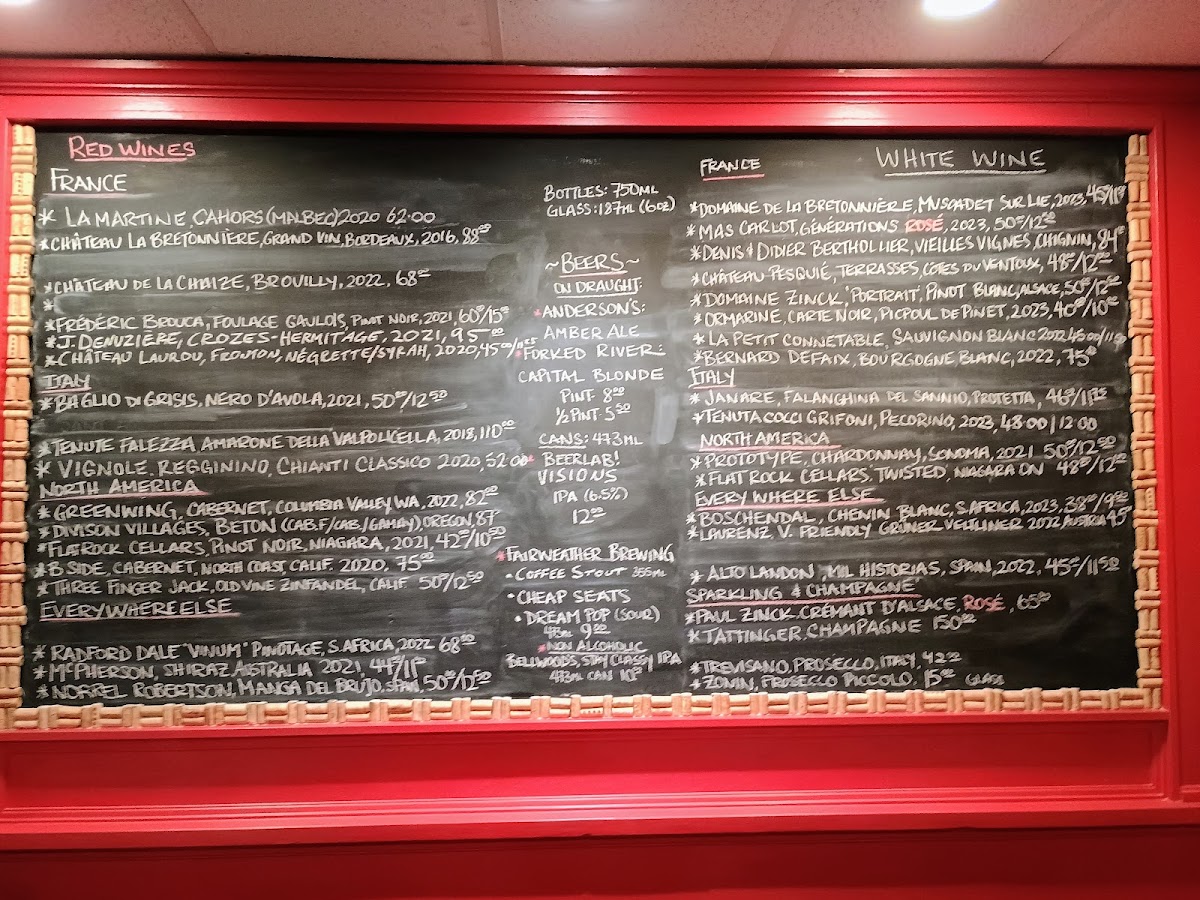 RED WINES
FRANCE
* LA MARTINE, CAHORS (MALBEC) 2020 62.00
* CHÂTEAU LA BRETONNIÈRE, GRAND VIN, BORDEAUX, 2016, 88⁰⁰
* CHÂTEAU DE LA CHAIZE, BROUILLY, 2022, 68⁰⁰
*
* FRÉDÉRIC BROUCA, FOULAGE GAULOIS, PINOT NOIR, 2021, 60⁰⁰/15⁰⁰
* J. DENUZIÈRE, CROZES-HERMITAGE, 2021, 95⁰⁰
* CHÂTEAU LAUROU, FRONTON, NÉGRETTE/SYRAH, 2020, 45⁰⁰
ITALY
* BAGLIO DI GRISIS, NERO D'AVOLA, 2021, 50⁰⁰/12⁵⁰
* TENUTE FALEZZA AMARONE DELLA VALPOLICELLA, 2018, 110⁰⁰
* VIGNOLE, REGGININO, CHIANTI CLASSICO 2020, 52.00
NORTH AMERICA
* GREENWING, CABERNET, COLUMBIA VALLEY, WA, 2022, 82⁰⁰
* DIVISON VILLAGES, BETON (CAB.F/CAB./GAMAY) OREGON, 87
* FLATROCK CELLARS, PINOT NOIR, NIAGARA, 2021, 42⁰⁰/10⁵⁰
* B SIDE, CABERNET, NORTH COAST CALIF. 2020, 75⁰⁰
* THREE FINGER JACK, OLD VINE ZINFANDEL, CALIF. 50⁰⁰/12⁵⁰
EVERYWHERE ELSE
* RADFORD DALE "VINUM" PINOTAGE, S.AFRICA, 2022 68⁰⁰
* McPHERSON, SHIRAZ, AUSTRALIA 2021, 44⁰⁰/11⁰⁰
* NORREL ROBERTSON, MANGA DEL BRUJO, SPAIN, 50⁰⁰/12⁵⁰
BOTTLES: 750ML
GLASS: 187ML (6OZ)
~BEERS~
ON DRAUGHT:
* ANDERSON'S:
AMBER ALE
* FORKED RIVER:
CAPITAL BLONDE
PINT 8⁰⁰
½ PINT 5⁵⁰
CANS: 473ML
* BEERLAB!
VISIONS
IPA (6.5%)
12⁰⁰
* FAIRWEATHER BREWING
• COFFEE STOUT 355ML
• CHEAP SEATS
• DREAM POP (SOUR)
473ML 9⁰⁰
* NON ALCOHOLIC
BELLWOODS, STAY CLASSY IPA
473ML CAN 10⁰⁰
WHITE WINE
FRANCE
* DOMAINE DE LA BRETONNIÈRE, MUSCADET SUR LIE, 2023, 45⁰⁰/11⁵⁰
* MAS CARLOT, GÉNÉRATIONS ROSÉ, 2023, 50⁰⁰/12⁵⁰
* DENIS & DIDIER BERTHOLLIER, VIEILLES VIGNES, CHIGNIN, 84⁰⁰
* CHÂTEAU PESQUIÉ, TERRASSES, CÔTES DU VENTOUX, 48⁰⁰/12⁰⁰
* DOMAINE ZINCK 'PORTRAIT', PINOT BLANC, ALSACE, 50⁰⁰/12⁵⁰
* ORMARINE, CARTE NOIR, PICPOUL DE PINET, 2023, 40⁰⁰/10⁰⁰
* LA PETIT CONNETABLE, SAUVIGNON BLANC 2022, 45.00/11.50
* BERNARD DEFAIX, BOURGOGNE BLANC, 2022, 75⁰⁰
ITALY
* JANARE, FALANGHINA DEL SANNIO, PROTETTA, 46⁰⁰/11⁵⁰
* TENUTA COCCI GRIFONI, PECORINO, 2023, 48.00 | 12.00
NORTH AMERICA
* PROTOTYPE, CHARDONNAY, SONOMA, 2021 50⁰⁰/12⁵⁰
* FLAT ROCK CELLARS, 'TWISTED', NIAGARA ON 48⁰⁰/12⁰⁰
EVERY WHERE ELSE
* BOSCHENDAL, CHENIN BLANC, S.AFRICA, 2023, 38⁰⁰/9⁵⁰
* LAURENZ V. FRIENDLY GRÜNER VELTLINER 2022 AUSTRIA 45⁰⁰
* ALTO LANDON, MIL HISTORIAS, SPAIN, 2022, 45⁰⁰/11⁵⁰
SPARKLING & CHAMPAGNE
* PAUL ZINCK CRÉMANT D'ALSACE, ROSÉ, 65⁰⁰
* TATTINGER CHAMPAGNE 150⁰⁰
* TREVISANO, PROSECCO, ITALY, 42⁰⁰
* ZONIN, PROSECCO PICCOLO, 15⁰⁰ GLASS